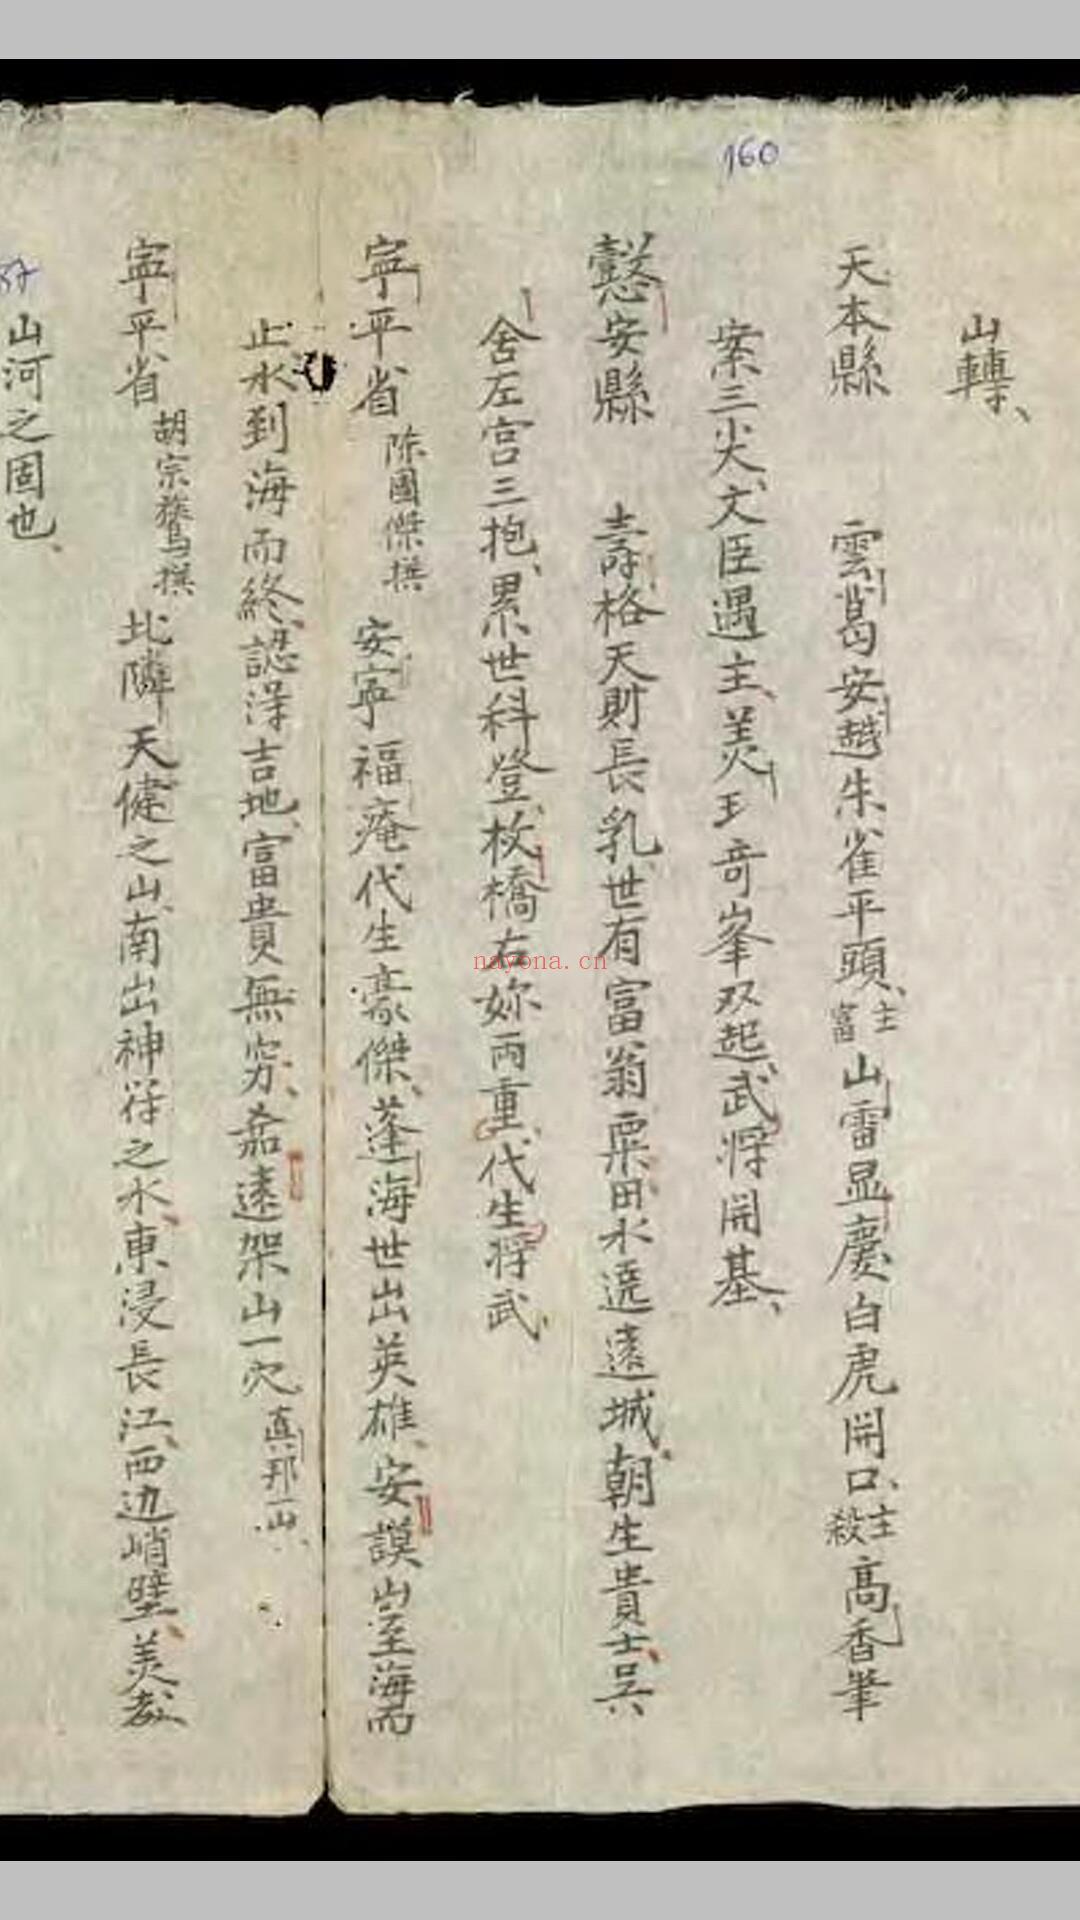 160
山轉、
天本縣 雲葛安越朱雀平頭、主富山雷显慶白虎開口、主殺高香筆
案三尖、文臣遇主、美王奇峯双起、武将開基、
懿安縣 壽格天財長乳、世有富翁粟田水遶遠城、朝生貴士、吴
舍左宫三抱、累世科登、枚橋右妳両重、代生将武、
寜平省 陈國傑撰 安寜福庵代生豪傑、蓬海世出英雄、安謨山至海而
止、水到海而終、認淂吉地、富貴無穷、嘉遠架山一穴 真邦一山、
寜平省 胡宗鷟撰 北隣天健之山、南出神符之水、東浸長江、西边峭壁、美哉
山河之固也、
37
nayona.cn